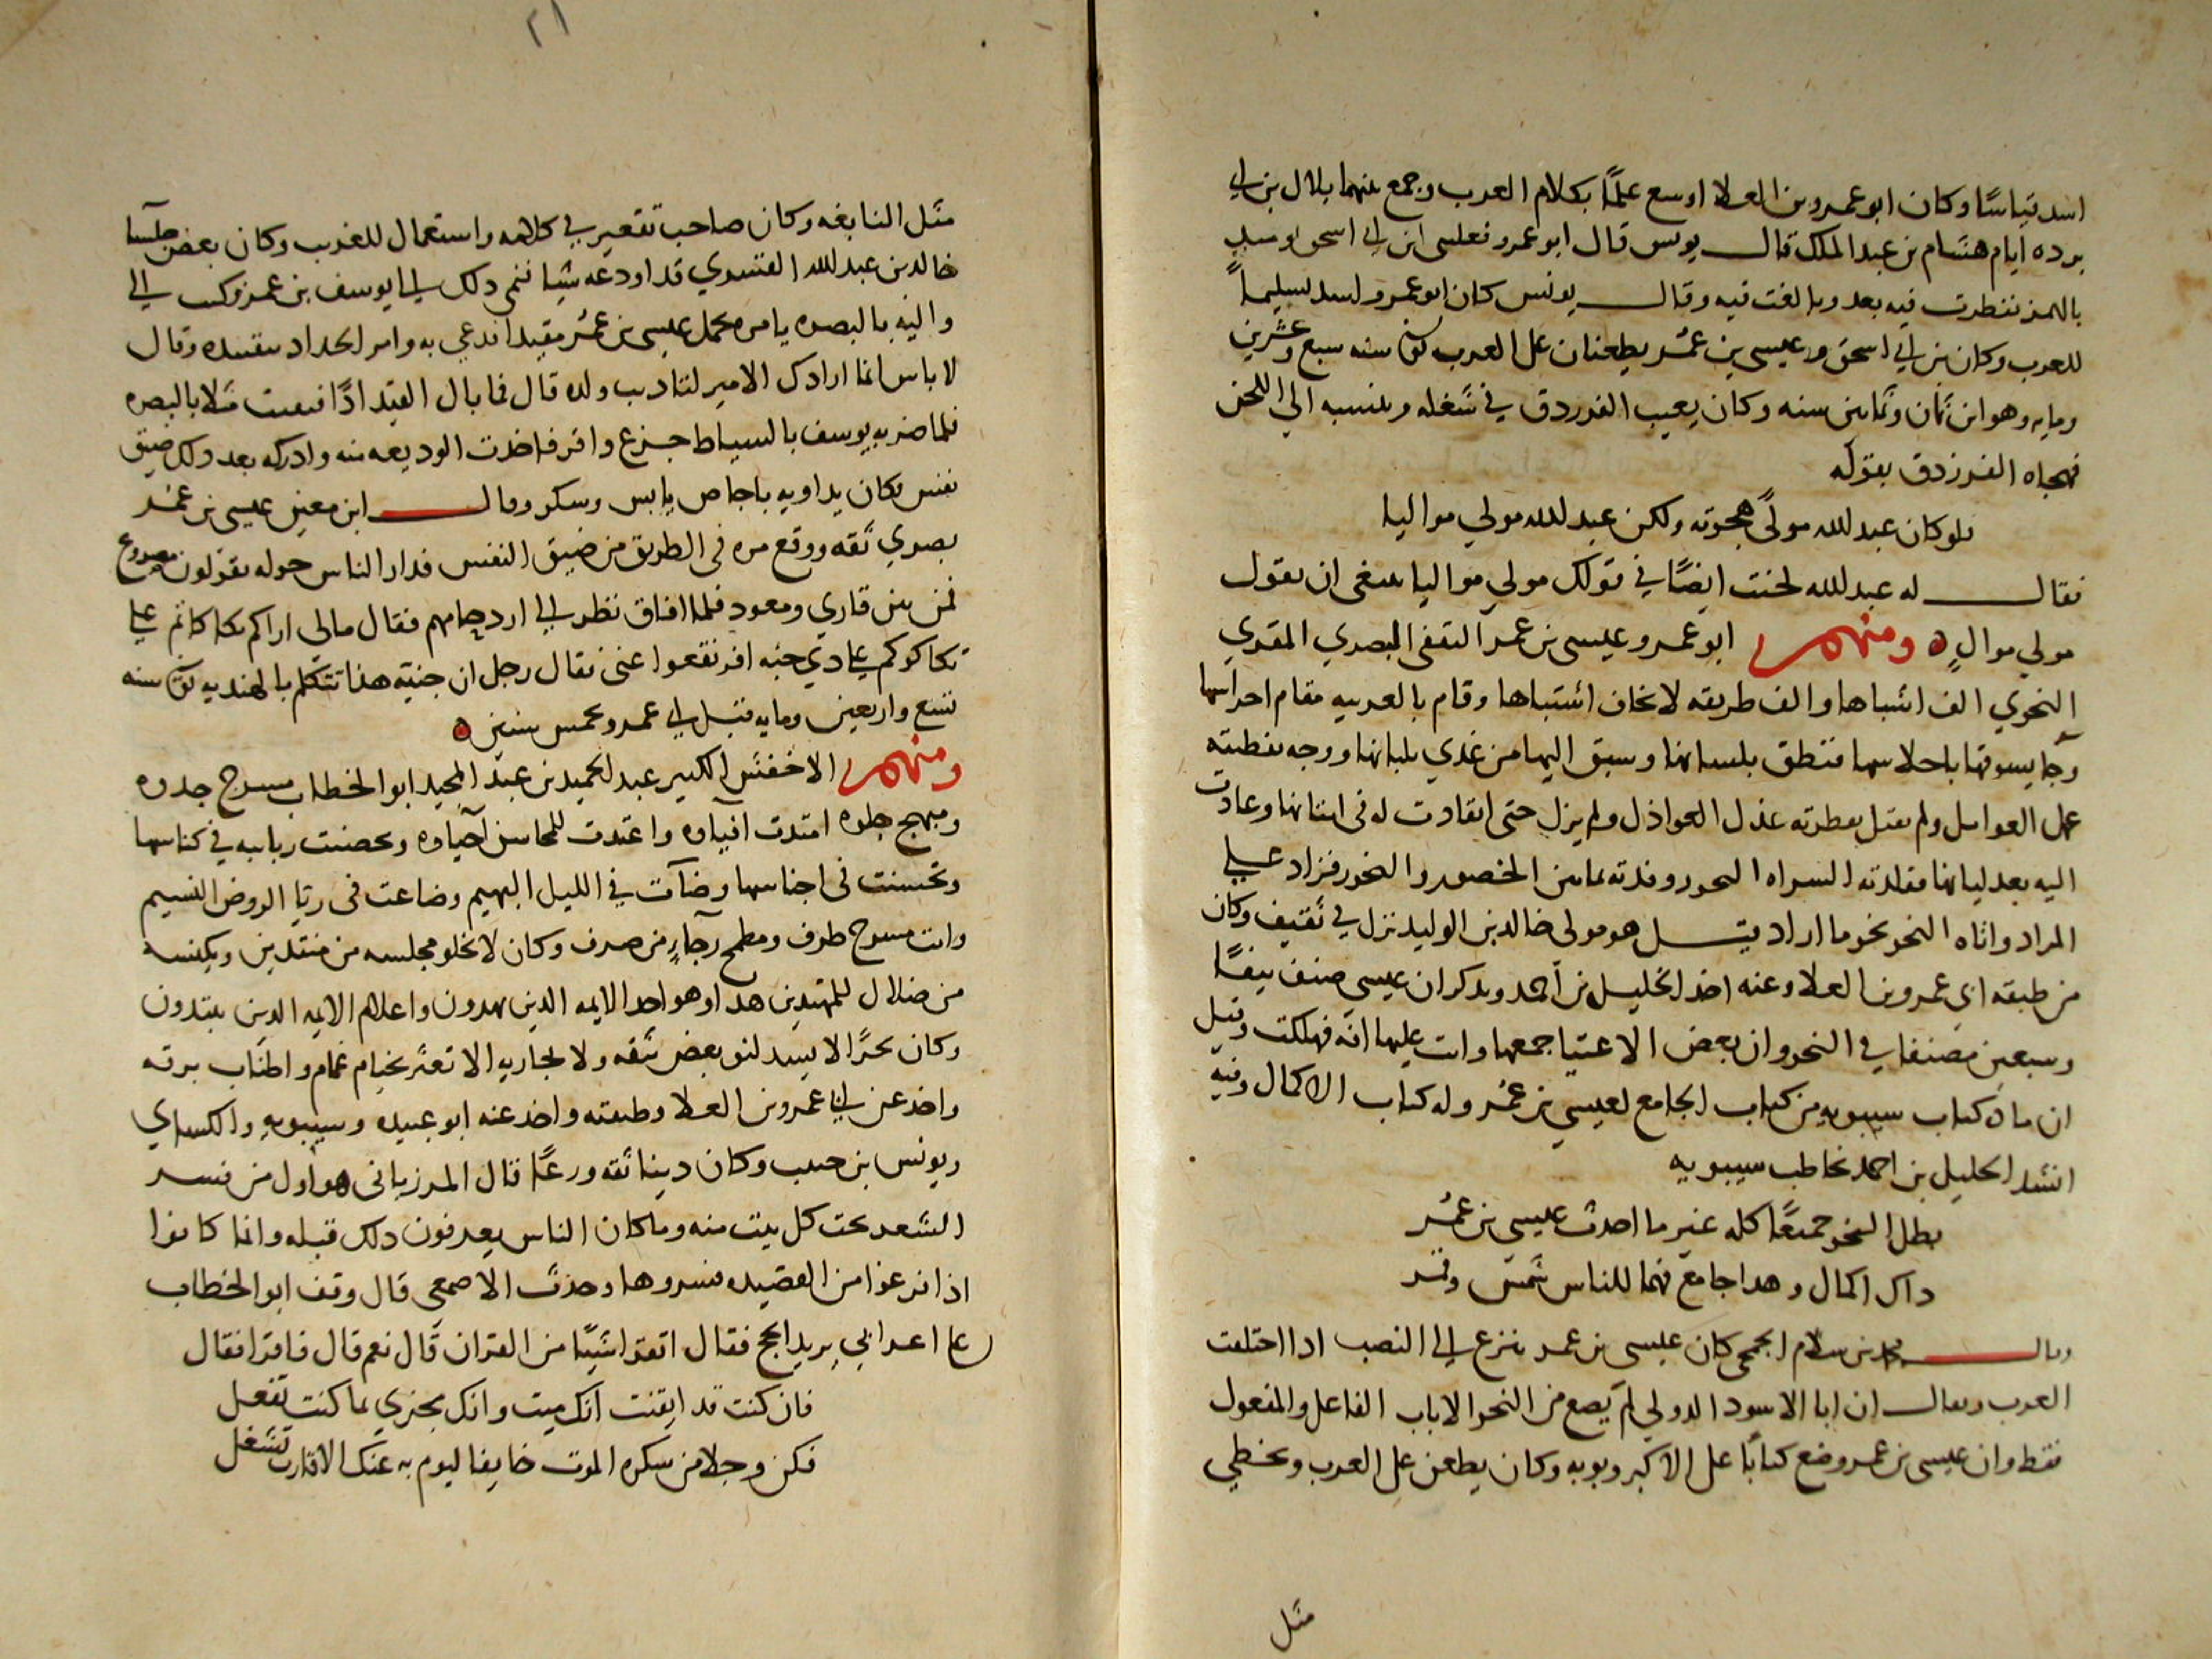 اسد قياسًا وكان ابو عمرو بن العلا اوسع علمًا بكلام العرب وجمع بينهما بلال بن ابي
برده ايام هشام بن عبد الملك قال يونس قال ابو عمرو فغلبني ابن ابي اسحق يوميذ
بالهمز فنظرت فيه بعد وبالغت فيه وقال يونس كان ابو عمرو اسد تسليماً
للعرب وكان بن ابي اسحق وعيسى بن عمر يطعنان على العرب توفي سنه سبع وعشرين
ومايه وهو ابن ثمان وثمانين سنه وكان يعيب الفرزدق في شغله وينسبه الي اللحن
فهجاه الفرزدق بقوله
فلو كان عبد الله مولىً هجوته ولكن عبد الله مولي مواليا
فقال له عبد الله لحنت ايضًا في قولك مولي مواليا ينبغي ان تقول
مولي موالٍ ه ومنهم ابو عمرو عيسى بن عمر الثقفي البصري المقري
النحوي الف اشباها والف طريقه لا يخاف اشتباها وقام بالعربيه مقام احراسها
وجا يسوقها باحلاسها فنطق بلسانها وسبق اليها من غذي بلبانها ووجه بفطنته
عمل العوامل ولم يقبل عذل العواذل ولم يزل حتى انقادت له في اشنانها وعادت
اليه بعد ليانها فقلدته النحور وفدته بمابين الخصور والنحور فزاد علي
المراد واتاه النحو نحو ما اراد قيل هو مولى خالد بن الوليد نزل في ثقيف وكان
من طبقه ابي عمرو بن العلا وعنه اخذ الخليل بن احمد ويذكر ان عيسي صنف نيفًا
وسبعين مصنفا في النحو وان بعض الاغنيا جمعها واتت عليها افه فهلكت وقيل
ان ماده كتاب سيبويه من كتاب الجامع لعيسي بن عمر وله كتاب الاكمال وفيه
انشد الخليل بن احمد يخاطب سيبويه
بطل النحو جميعًا كله غير ما احدث عيسى بن عمر
ذاك اكمال وهذا جامع فهما للناس شمس وقمر
وقال محمد بن سلام الجمحي كان عيسى بن عمر ينزع الي النصب اذا اختلفت
العرب ويقال ان ابا الاسود الدولي لم يضع من النحو الا باب الفاعل والمفعول
فقط وان عيسى بن عمر وضع كتابًا على الاكبر وبوبه وكان يطعن على العرب ويخطي
مثل
٢١
مثل النابغه وكان صاحب تقعير في كلامه واستعمال للغريب وكان بعض جلسا
خالد بن عبد الله القسري قد اودعه شيا فنمي ذلك الي يوسف بن عمر فكتب الي
واليه بالبصره يامره بحمل عيسى بن عمر مقيدا فدعي به وامر الحداد بتقييده وقال
لا باس انما ارادك الامير لتاديب ولده قال فما بال القيد اذًا فبقيت مثلا بالبصره
فلما ضربه يوسف بالسياط جزع واقر فاخذت الوديعه منه وادركه بعد ذلك ضيق
نفس فكان يداويه باجاص يابس وسكر وقال ابن معين عيسى بن عمر
بصري ثقه ووقع مره في الطريق من ضيق النفس فدار الناس حوله يقولون مصروع
فمن بين قاري ومعوذ فلما افاق نظر الي ازدحامهم فقال مالي اراكم تكاكاتم علي
تكاكوكم علي ذي جنه افرنقعوا عني فقال رجل ان جنيته هذا تتكلم بالهنديه توفي سنه
تسع واربعين ومايه قبل ابي عمرو بخمس سنين ه
ومنهم الاخفش الكبير عبد الحميد بن عبد المجيد ابو الخطاب مسرح جدوه
ومبهج جلوه امتدت افياوه واعتدت للمحاسن احياوه وتحصنت رباببه في كناسها
وتحسنت في اجناسها وضآت في الليل البهيم وضاعت في ريا الروض النسيم
وانت مسرح طرف ومطمح رجاءٍ من صرف وكان لا يخلو مجلسه من مقتدين
من ضلال للمهتدين هذا وهو احد الايمه الذين يهدون واعلام الايمه الذين يقتدون
وكان بحرًا الا يبتد لنو بعض شقه ولا لجاريه الا تعثر بخيام غمام واطناب برقه
واخذ عن ابي عمرو بن العلا وطبقته واخذ عنه ابو عبيده وسيبويه والكساي
ويونس بن حبيب وكان دينا ثقه ورعًا قال المرزباني هو اول من فسر
الشعر تحت كل بيت منه وما كان الناس يعرفون ذلك قبله وانما كانوا
اذا فرغوا من القصيده فسروها وحدث الاصمعي قال وقف ابو الخطاب
على اعرابي يريد الحج فقال اتقرا شيًا من القران قال نعم قال فاقرا فقال
فان كنت قد ايقنت انك ميت وانك مجزي بما كنت تفعل
فكن وجلا من سكره الموت خايفا ليوم به عنك الاقارب تشغل